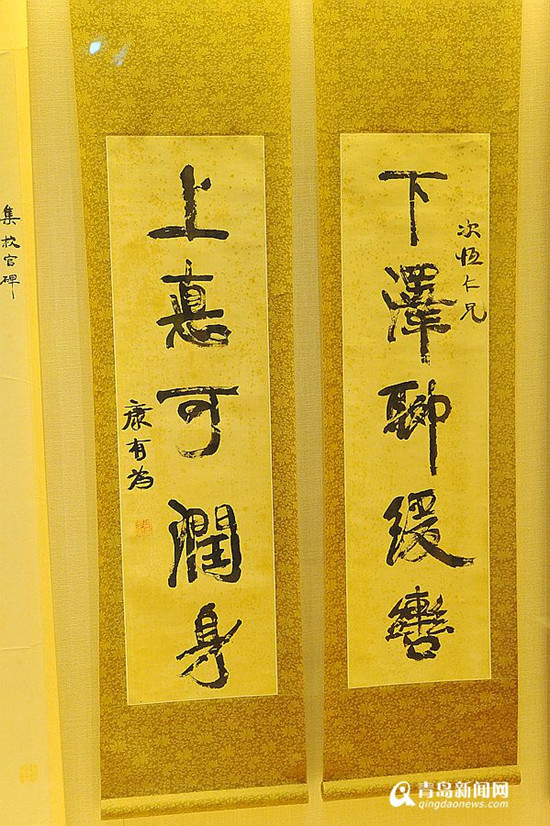 次恆仁兄
下澤聊緩轡
上悳可潤身
康有為
集校官碑
青岛新闻网
qingdaonews.com